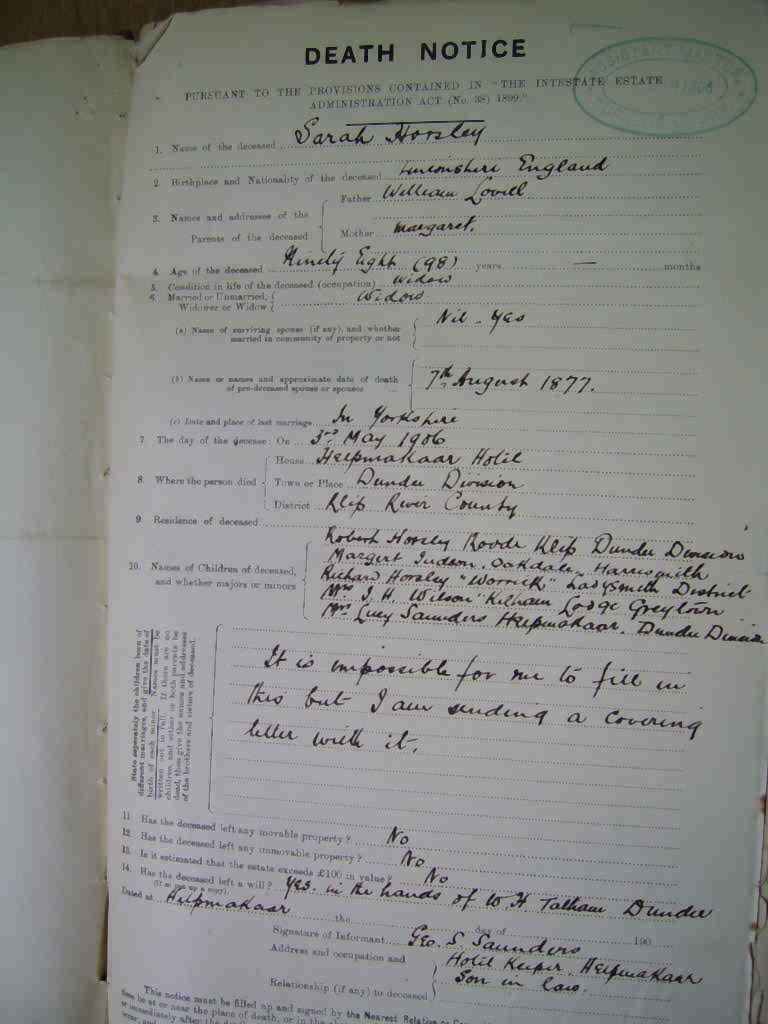 DEATH NOTICE
PURSUANT TO THE PROVISIONS CONTAINED IN "THE INTESTATE ESTATE
ADMINISTRATION ACT (No. 38) 1899."
1. Name of the deceased Sarah Horsley
2. Birthplace and Nationality of the deceased England
3. Names and addresses of the Parents of the deceased
Father William Lovill
Mother Margaret.
4. Age of the deceased Ninety Eight (98) years — months
5. Condition in life of the deceased (occupation) Widow
6. Married or Unmarried, Widower or Widow Widow
(a) Name of surviving spouse (if any), and whether
married in community of property or not
Nil - Yes
(b) Name or names and approximate date of death
of pre-deceased spouse or spouses
7th August 1877.
(c) Date and place of last marriage In Yorkshire
7. The day of the decease: On 3rd May 1906
8. Where the person died
House Helpmakaar Hotel
Town or Place Dundee Division
District Klip River County
9. Residence of deceased
10. Names of Children of deceased,
and whether majors or minors
Robert Horsley Rovde Klip Dundee Division
Margert Judson, Oakdale, Harrismith
Richard Horsley "Worrick" Ladysmith District
Mrs J. H. Wilson Kilham Lodge Greytown
Mrs Lucy Saunders Helpmakaar. Dundee Division
State separately the children born of
different marriages, and give the date of
birth of each minor. Names must be
written out in full. If there are no
children, and either or both parents be
dead, then give the names and addresses
of the brothers and sisters of deceased.
It is impossible for me to fill in
this but I am sending a covering
letter with it.
11. Has the deceased left any movable property? No
12. Has the deceased left any immovable property? No
13. Is it estimated that the estate exceeds £100 in value? No
14. Has the deceased left a will? Yes. in the hands of W H Tatham Dundee
Dated at Helpmakaar the day of 190
Signature of Informant Geo. S. Saunders
Address and occupation and Hotel Keeper. Helpmakaar
Relationship (if any) to deceased Son in law.
This notice must be filled up and signed by the Nearest Relative or